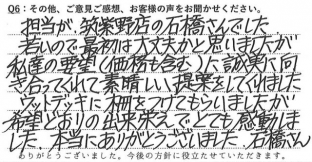 Q6：その他、ご意見ご感想、お客様の声をお聞かせください。
担当が、筑紫野店の石橋さんでした。
若いので最初は大丈夫かと思いましたが
私達の要望(価格も含む)に誠実に向
き合ってくれて素晴しい提案をしてくれました
ウッドデッキに柵をつけてもらいましたが
希望どおりの出来栄えでとても感動しま
した。本当にありがとうございました。石橋さん
ありがとうございました。今後の方針に役立たせていただきます。